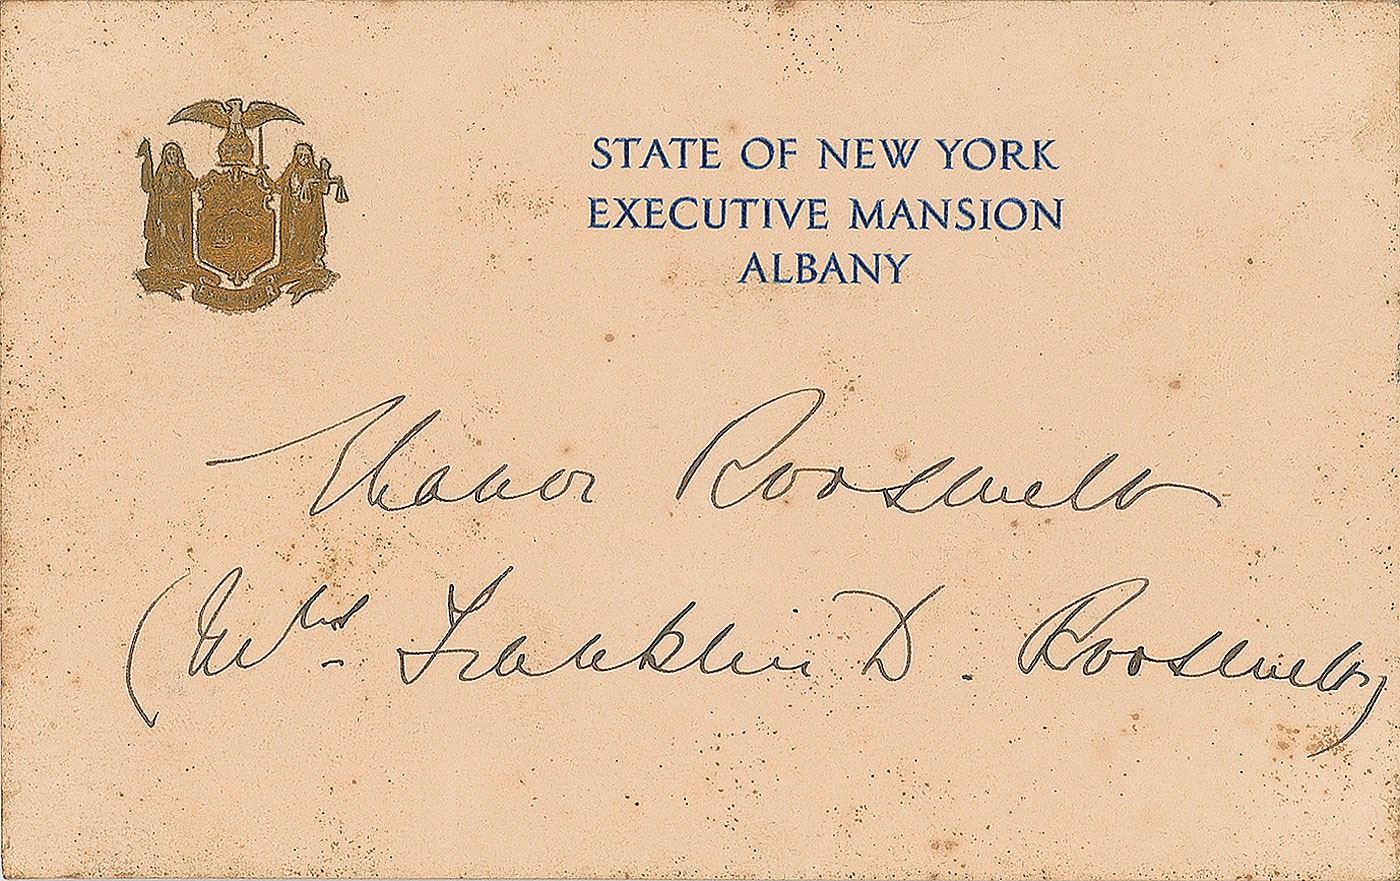 STATE OF NEW YORK
EXECUTIVE MANSION
ALBANY
Eleanor Roosevelt
(Mrs. Franklin D. Roosevelt)